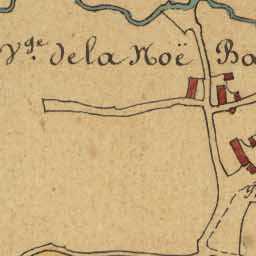 Vge. de la Noë Ba